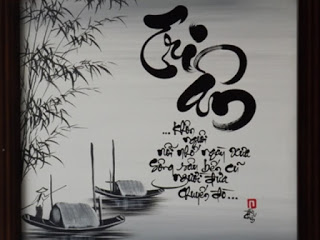 Tri
ân
... Khôn
người
nỗi nhớ ngày xưa
Sông sâu bến cũ
người đưa
chuyến đò...